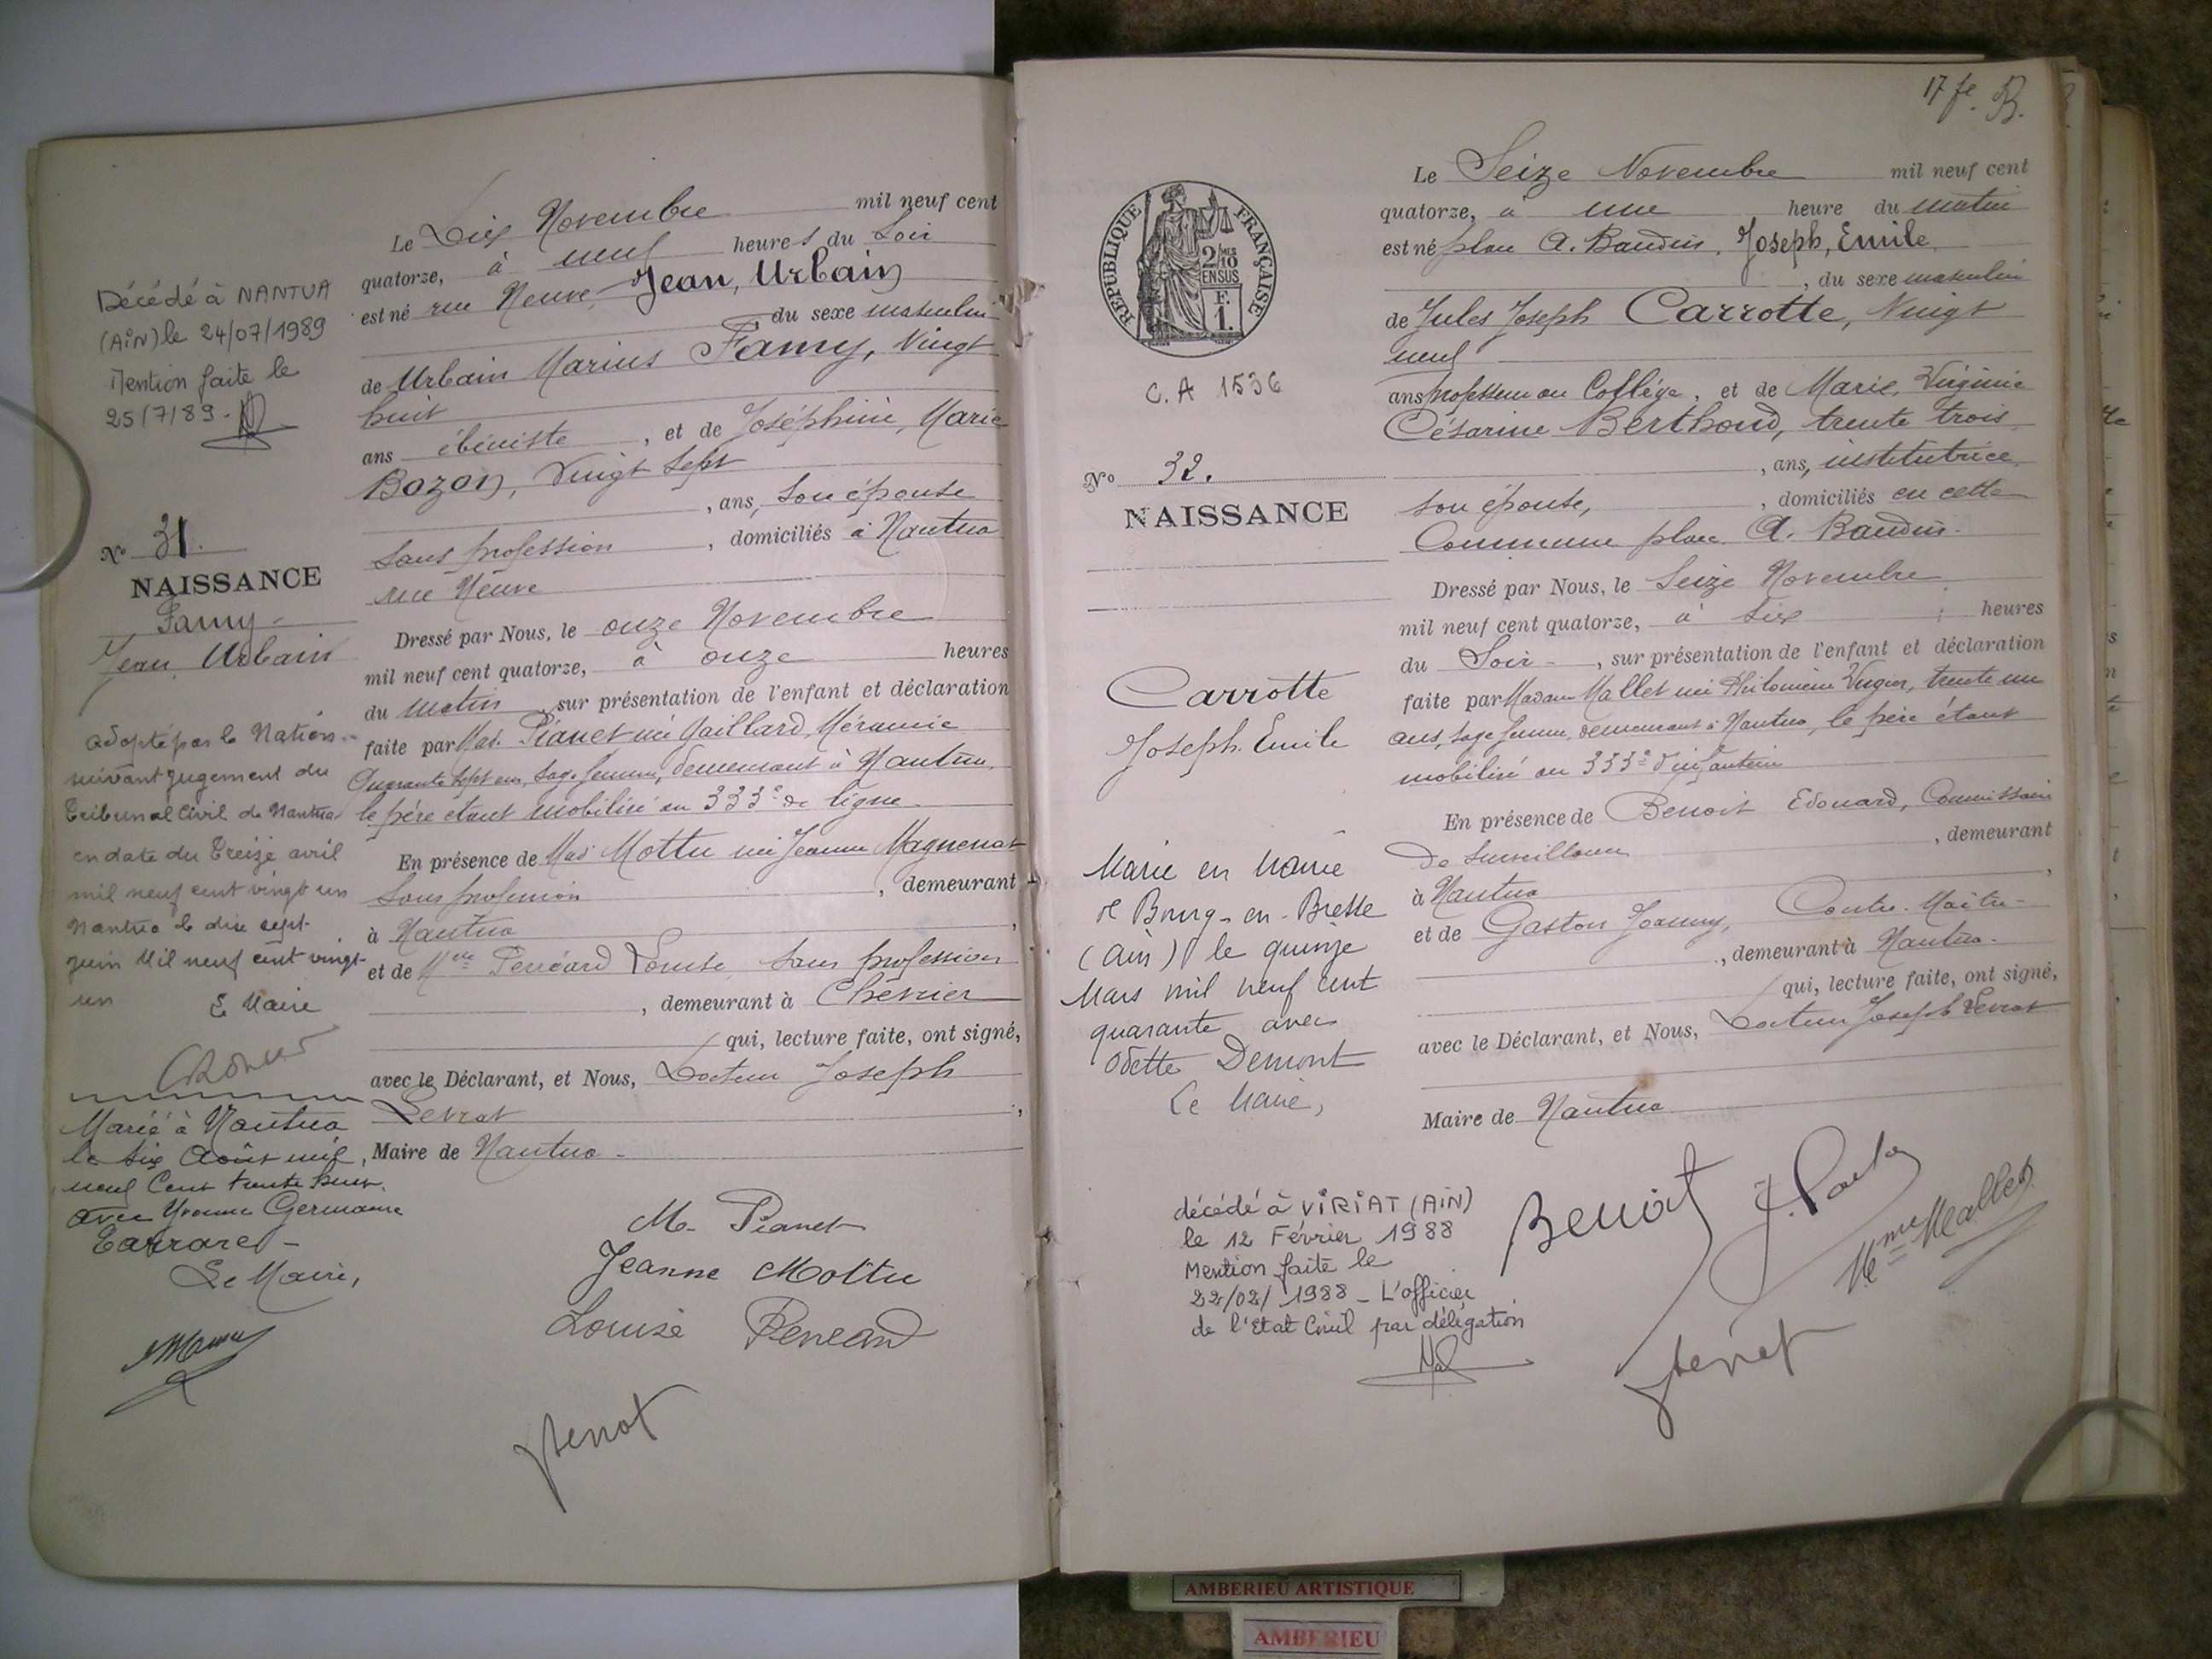 Décédé à NANTUA
(AiN) le 24/07/1989
Mention faite le
25/7/89.
N° 31.
NAISSANCE
Famy
Jean, Urbain
adopté par la Nation
suivant jugement du
Tribunal Civil de Nantua
en date du treize avril
mil neuf cent vingt un
Nantua le dix sept
juin Mil neuf cent vingt
un
Le Maire
Marié à Nantua
le six Août mil
neuf Cent trente huit
avec Yvonne Germaine
Le Maire,
Le Dix Novembre mil neuf cent
quatorze, à neuf heures du Soir
est né rue Neuve, Jean, Urbain
du sexe masculin
de Urbain Marius Famy, Vingt
huit
ans ébéniste, et de Joséphine, Marie
Bozon, Vingt Sept
, ans, son épouse
Sans profession, domiciliés à Nantua
rue Neuve
Dressé par Nous, le onze Novembre
mil neuf cent quatorze, à onze heures
du matin, sur présentation de l'enfant et déclaration
faite par Mad. Pianet née Gaillard,
Quarante Sept ans, Sage femme, demeurant à Nantua,
le père étant mobilisé au 333e de ligne
En présence de Mad Mottu née Jeanne Magnenat
Sans profession, demeurant
à Nantua,
et de Mlle Louise, Sans profession
, demeurant à
qui, lecture faite, ont signé,
avec le Déclarant, et Nous, Docteur Joseph
Levrat,
Maire de Nantua
M. Pianet
Jeanne Mottu
Louise
17 fe. B.
REPUBLIQUE FRANÇAISE
2/10 EN SUS
F. 1.
C.A 1536
N° 32.
NAISSANCE
Carrotte
Joseph. Emile
Marié en Mairie
de Bourg-en-Bresse
(Ain) le quinze
Mars mil neuf cent
quarante avec
Odette Demont
Le Maire,
décédé à VIRIAT (AiN)
le 12 Février 1988
Mention faite le
22/02/1988 _ L'officier
de l'Etat Civil par délégation
Le Seize Novembre mil neuf cent
quatorze, à une heure du matin
est né place A. Baudin, Joseph, Emile
, du sexe masculin
de Jules Joseph Carrotte, Vingt
neuf
ans professeur au Collège, et de Marie, Virginie
Césarine Berthoud, trente trois
, ans, institutrice
son épouse, domiciliés en cette
Commune place A. Baudin.
Dressé par Nous, le Seize Novembre
mil neuf cent quatorze, à Six heures
du Soir, sur présentation de l'enfant et déclaration
faite par Madame Mallet née Philomène, trente un
ans, Sage femme, demeurant à Nantua, le père étant
mobilisé au 333e d'infanterie
En présence de Benoit Edouard, Commissaire
de Surveillance, demeurant
à Nantua,
et de Gaston Joanny, Contre-Maître
, demeurant à Nantua.
qui, lecture faite, ont signé,
avec le Déclarant, et Nous, Docteur Joseph Levrat
Maire de Nantua
Benoit
Mme Mallet
AMBERIEU ARTISTIQUE
AMBERIEU